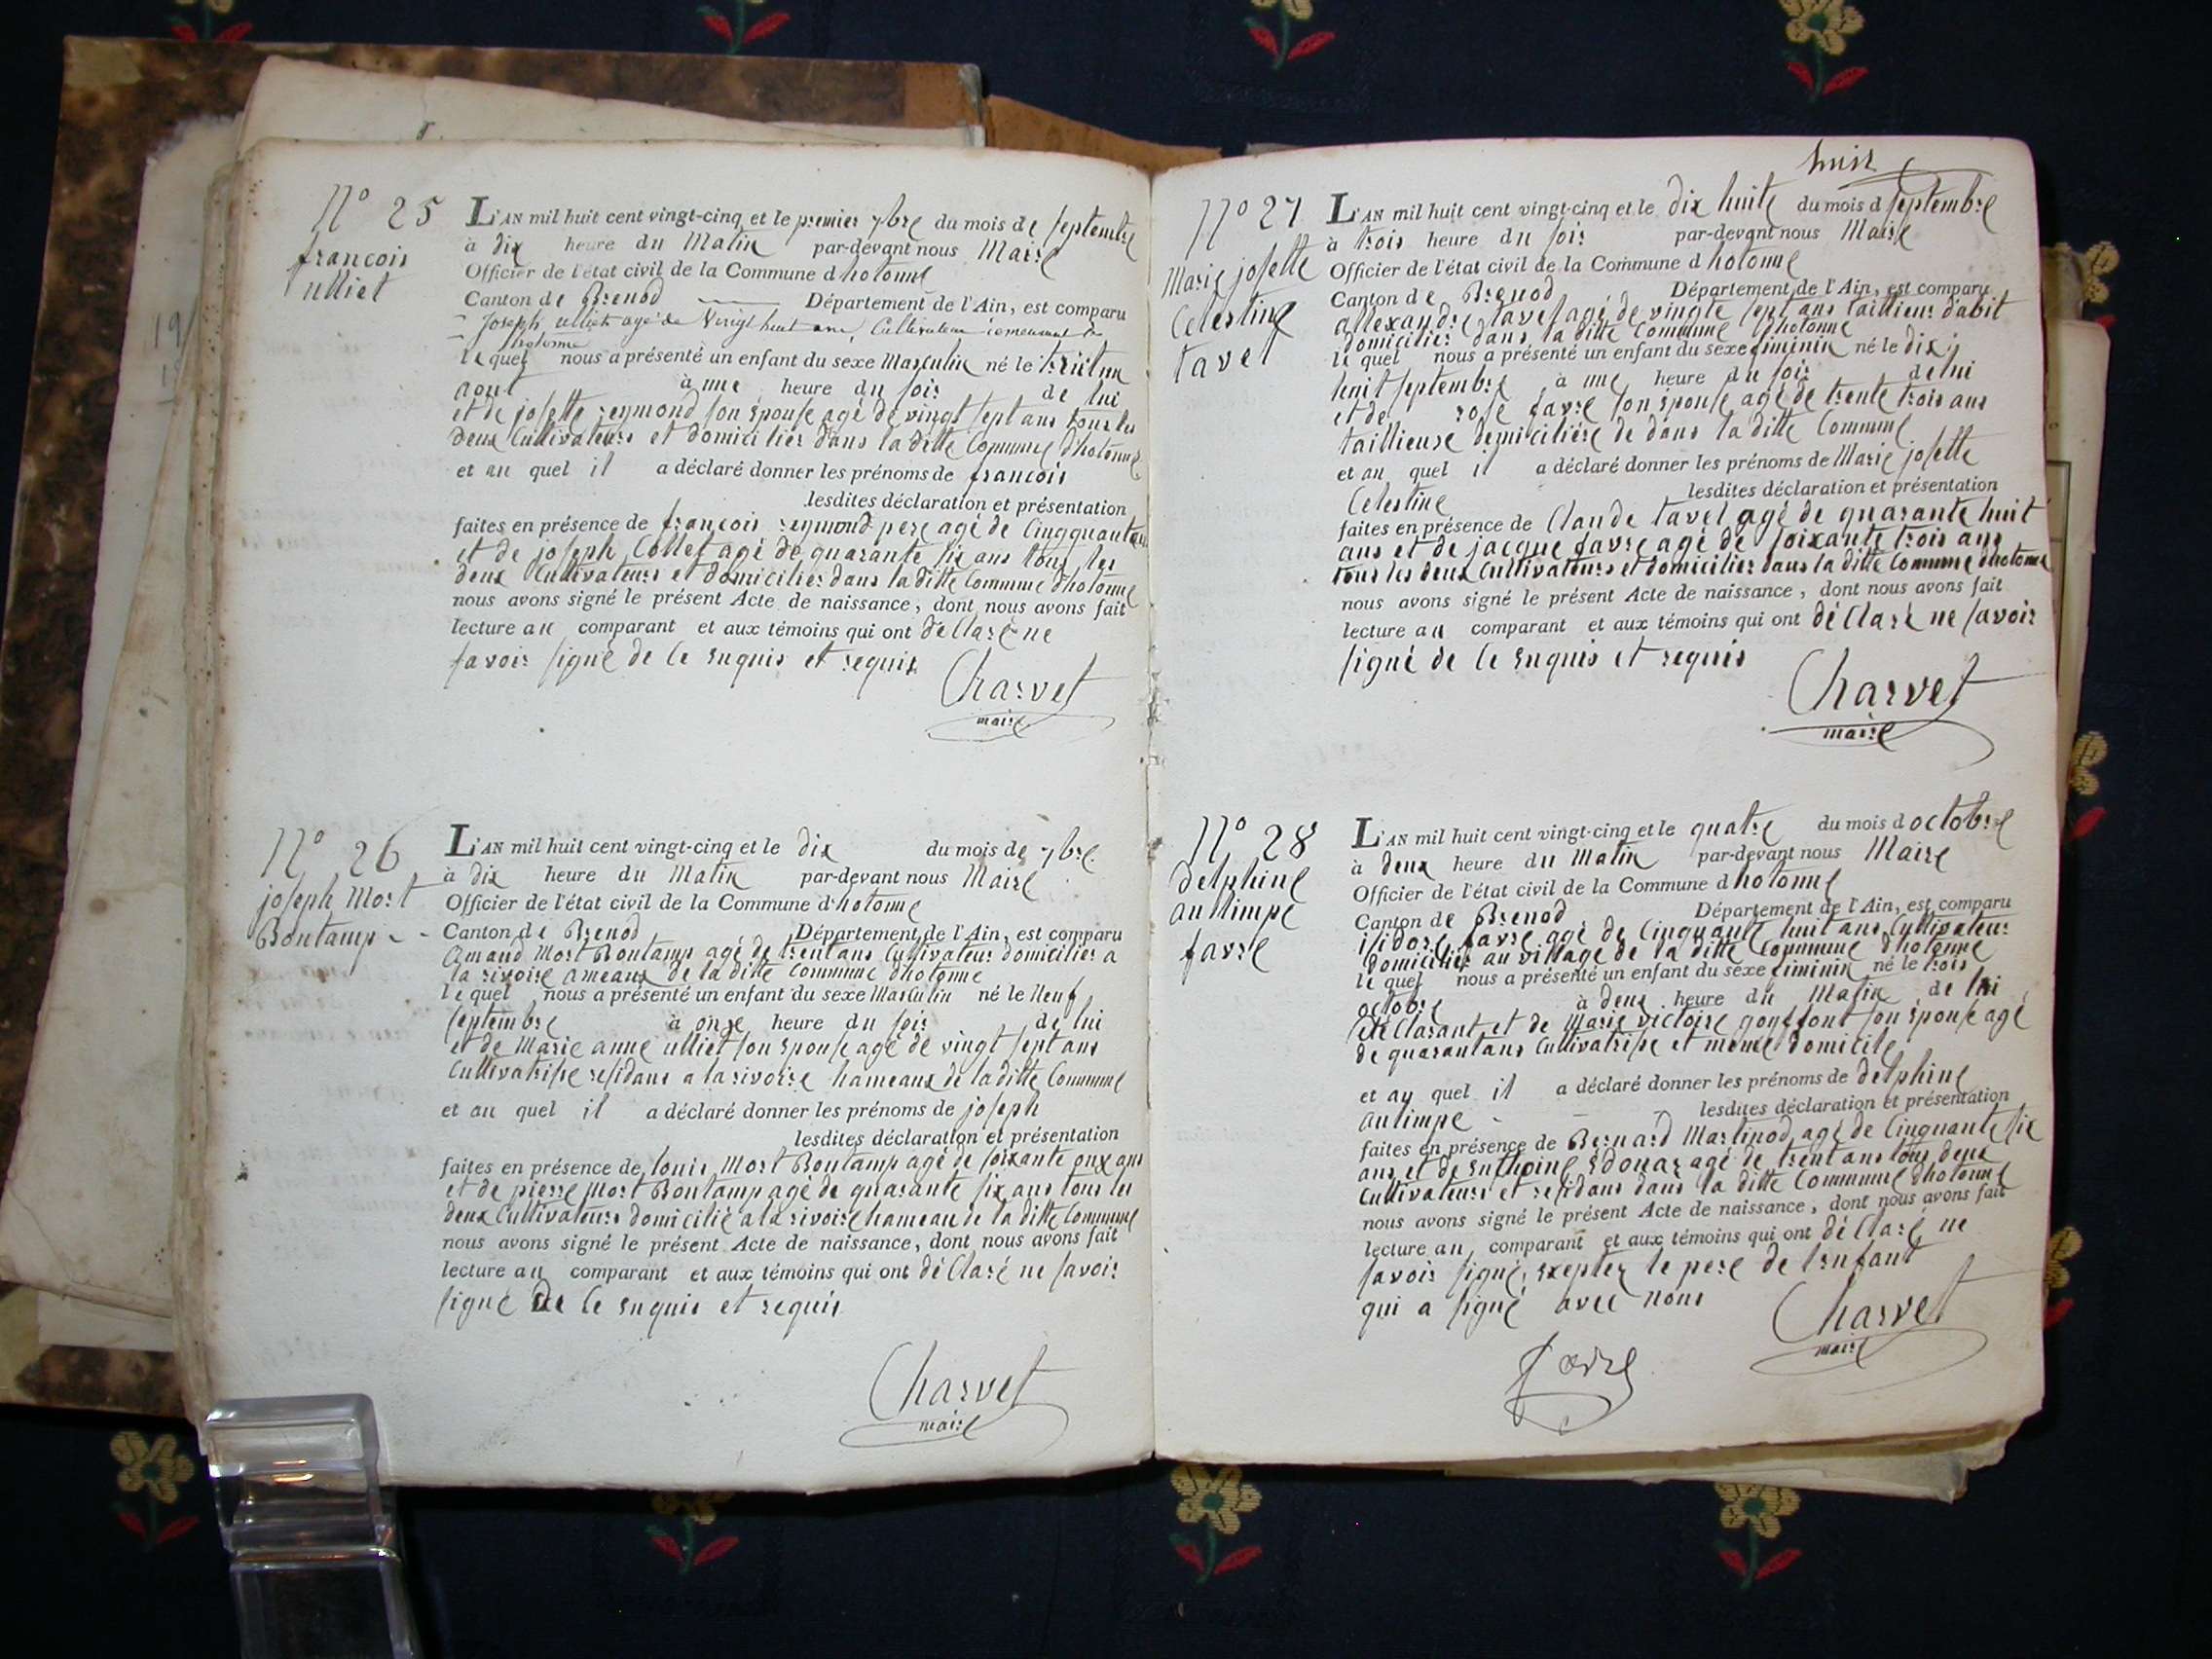 N° 25
francois
ulliet
L'AN mil huit cent vingt-cinq et le premier 7bre du mois de septembre
à dix heure du Matin par-devant nous Maire
Officier de l'état civil de la Commune d hotonne
Canton de Brenod Département de l'Ain, est comparu
Joseph ulliet agé de Vingt huit ans, Cultivateur
hotonne
le quel nous a présenté un enfant du sexe Masculin né le trent un
aout à une heure du soir de lui
et de josette reymond son epouse agé de vingt sept ans tous les
deux Cultivateurs et domicilier dans la ditte Commune d'hotonne
et au quel il a déclaré donner les prénoms de francois
lesdites déclaration et présentation
faites en présence de françois reymond pere agé de Cinqquante ans
et de joseph Collet agé de quarante six ans tous les
deux Cultivateurs et domicilier dans la ditte Commune d'hotonne
nous avons signé le présent Acte de naissance, dont nous avons fait
lecture au comparant et aux témoins qui ont déClaré ne
savoir signé de Ce enquis et requis
Charvet
maire
N° 26
joseph Mort
Bontamp
L'AN mil huit cent vingt-cinq et le dix du mois de 7bre
à dix heure du Matin par-devant nous Maire
Officier de l'état civil de la Commune d'hotonne
Canton de Brenod Département de l'Ain, est comparu
Amand Mort Bontamp agé de trent ans Cultivateur domicilier a
la rivoire ameaux de la ditte Commune d'hotonne
le quel nous a présenté un enfant du sexe Masculin né le Neuf
septembre à onze heure du soir de lui
et de Marie anne ulliet son epouse agé de vingt sept ans
Cultivatrisse residans a la rivoire hameaux de la ditte Commune
et au quel il a déclaré donner les prénoms de joseph
lesdites déclaration et présentation
faites en présence de louis Mort Bontamp agé de soixante onx ans
et de pierre Mort Bontamp agé de quarante six ans tous les
deux Cultivateurs domicilié a la rivoire hameau de la ditte Commune
nous avons signé le présent Acte de naissance, dont nous avons fait
lecture au comparant et aux témoins qui ont déClaré ne savoir
signé De Ce enquis et requis
Charvet
maire
huit
N° 27
Marie josette
Celestine
tavel
L'AN mil huit cent vingt-cinq et le dix huite du mois d septembre
à trois heure du soir par-devant nous Maire
Officier de l'état civil de la Commune d hotonne
Canton de Brenod Département de l'Ain, est comparu
allexandre tavel agé de vingte sept ans taillieur d'abit
domicilier dans la ditte Commune d'hotonne
le quel nous a présenté un enfant du sexe feminin né le dix
huit septembre à une heure du soir de lui
et de rose favre son epouse agé de trente trois ans
taillieuse demiciliére de dans la ditte Commune
et au quel il a déclaré donner les prénoms de Marie josette
Celestine lesdites déclaration et présentation
faites en présence de Claude tavel agé de quarante huit
ans et de jacque favre agé de soixante trois ans
tous les deux Cultivateurs et domicilier dans la ditte Commune d'hotonne
nous avons signé le présent Acte de naissance, dont nous avons fait
lecture au comparant et aux témoins qui ont déClaré ne savoir
signé de Ce enquis et requis
Charvet
maire
N° 28
Delphine
aulimpe
favre
L'AN mil huit cent vingt-cinq et le quatre du mois d octobre
à deux heure du Matin par-devant nous Maire
Officier de l'état civil de la Commune d hotonne
Canton de Brenod Département de l'Ain, est comparu
isidore favre agé de Cinquante huit ans Cultivateur
domicilier au village de la ditte Commune d'hotonne
le quel nous a présenté un enfant du sexe feminin né le trois
octobre à deux heure du Matin de lui
déClarant et de Marie victoire son epouse agé
de quarant ans Cultivatrisse et meme domicile
et au quel il a déclaré donner les prénoms de delphine
aulimpe lesdites déclaration et présentation
faites en présence de Bernard Martinod agé de Cinquante six
ans et de enthoine edouar agé de trent ans tous deux
Cultivateurs et residans dans la ditte Commune d'hotonne
nous avons signé le présent Acte de naissance, dont nous avons fait
lecture au comparant et aux témoins qui ont déClaré ne
savoir signé, exepter le pere de l'enfant
qui a signé avec nous
Charvet
maire
favre